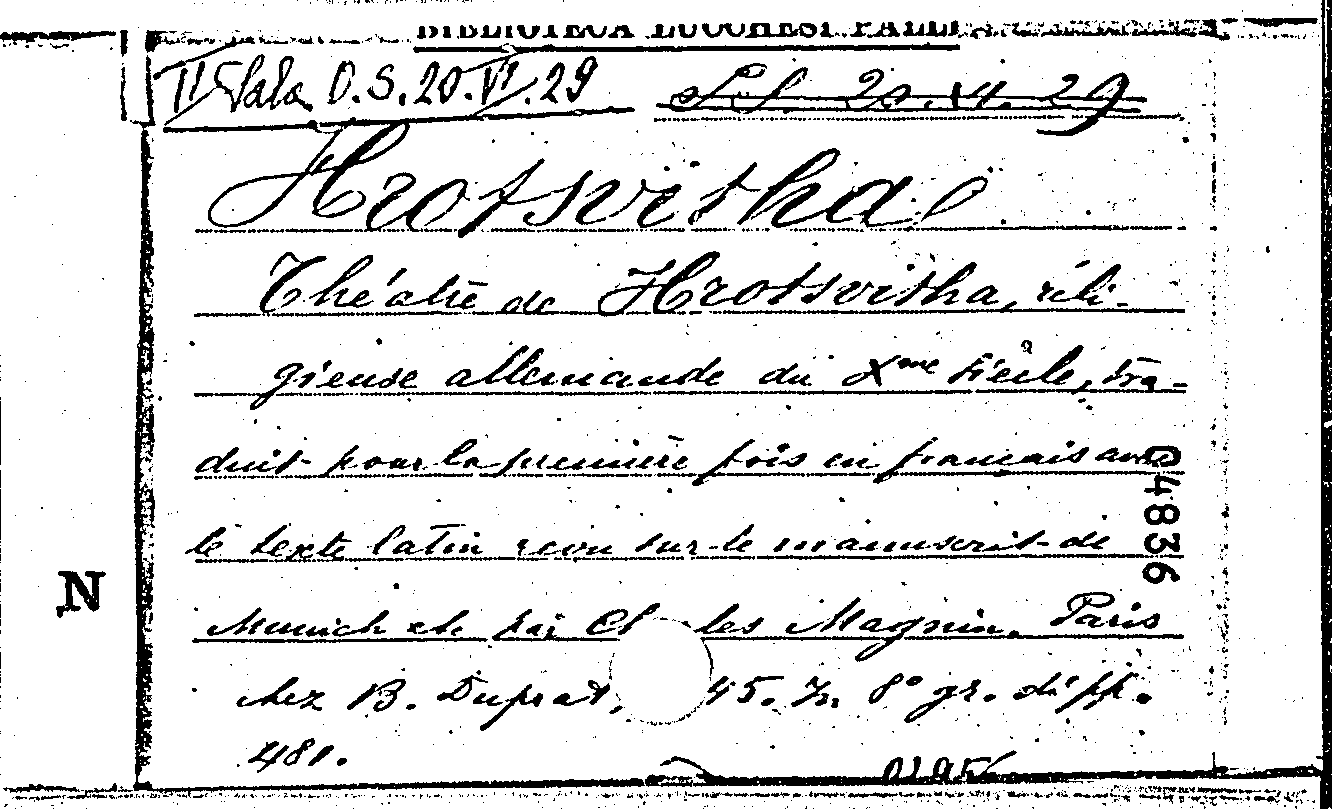 BIBLIOTECA LUCCHESI PALLI
II Sala O.S. 20.VI.29
20.VI.29
Hrotsvitha
Théatre de Hrotsvitha, réli-
gieuse allemande du Xme siècle, tra-
duit pour la première fois en français avec
le texte latin revu sur le manuscrit de
Munich etc par Charles Magnin. Paris
chez B. Duprat, 45. In 8° gr. di pp.
481.
04836
N